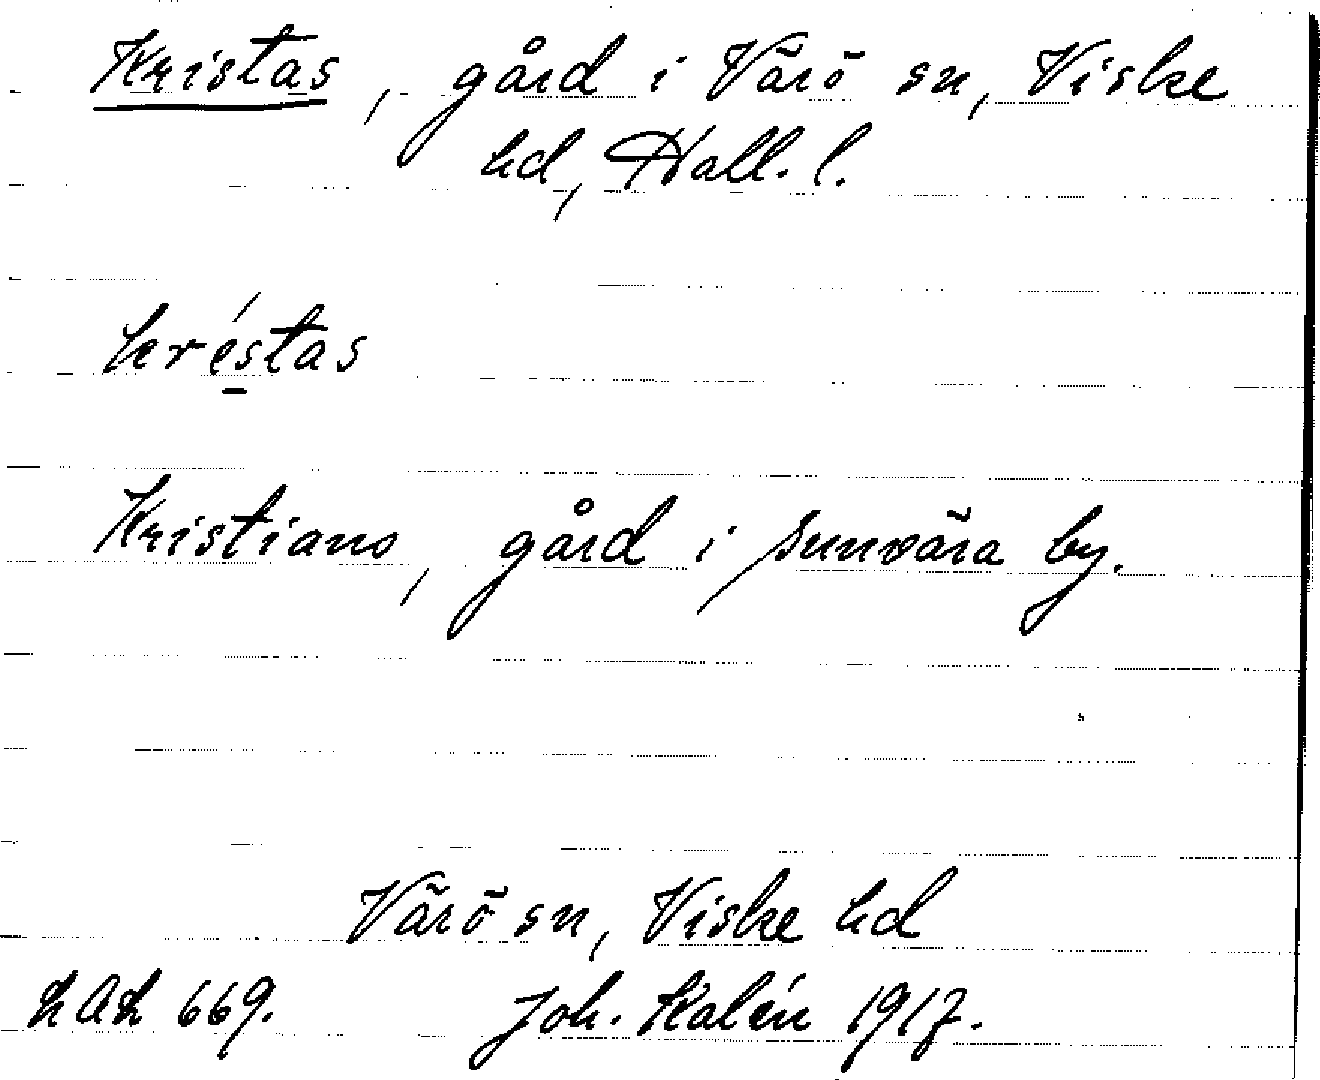 Kristas, gård i Värö sn, Viske
hd, Hall. l.
kréstas
Kristians, gård i Sunvära by.
Värö sn, Viske hd
669. Joh. Kalén 1917.